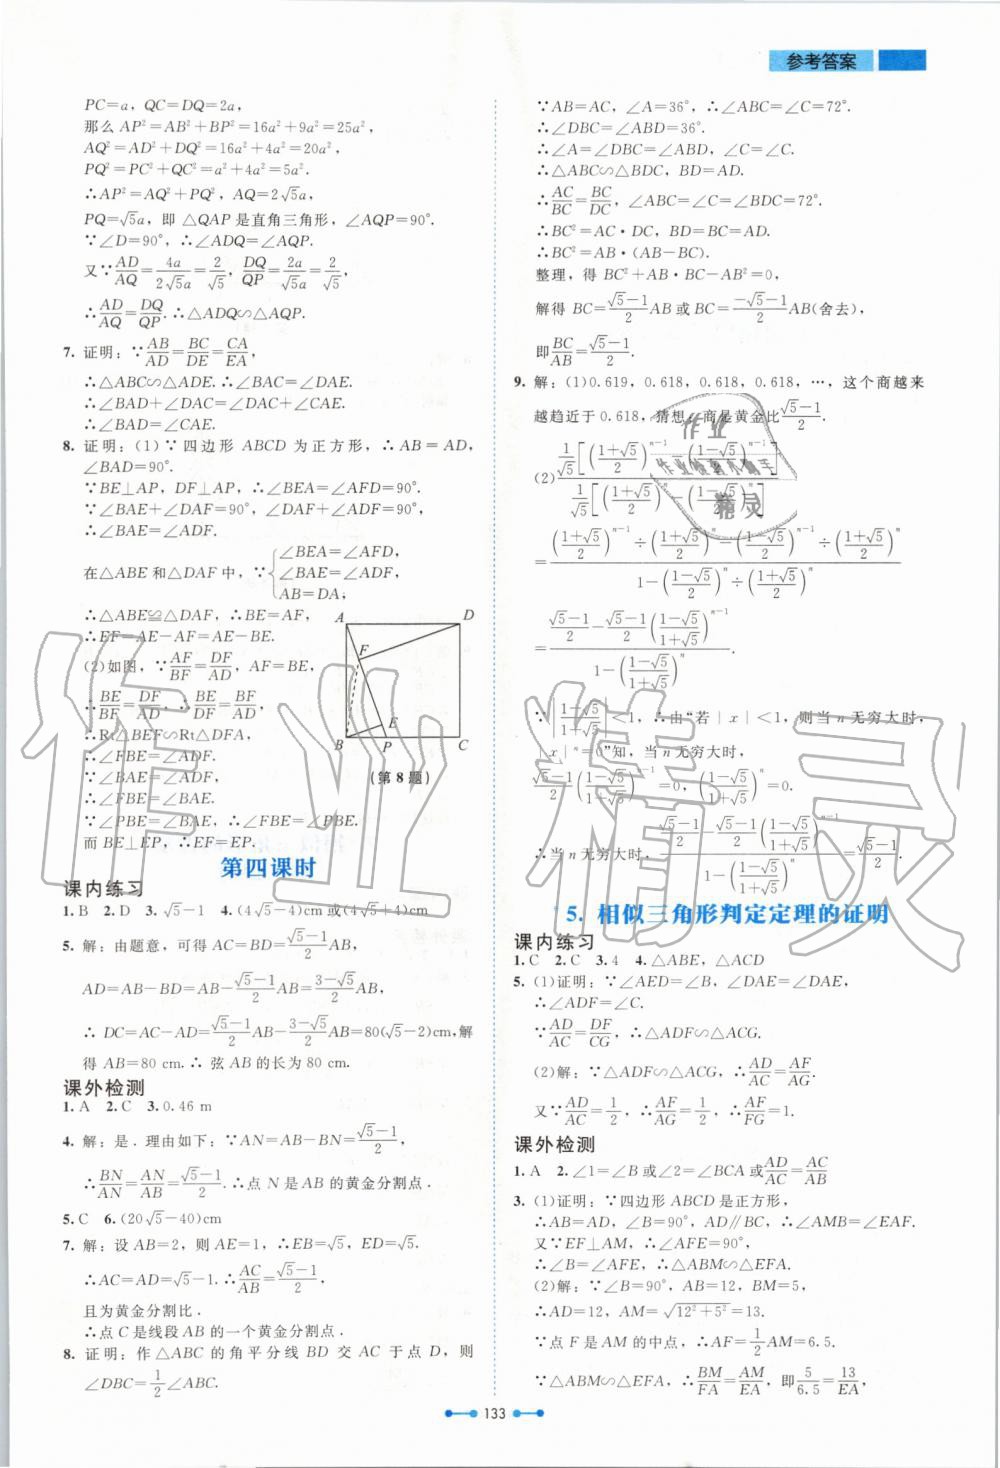 参考答案
PC=a，QC=DQ=2a，
那么 AP²=AB²+BP²=16a²+9a²=25a²，
AQ²=AD²+DQ²=16a²+4a²=20a²，
PQ²=PC²+QC²=a²+4a²=5a².
∴AP²=AQ²+PQ²，AQ=2√5a，
PQ=√5a，即 △QAP 是直角三角形，∠AQP=90°.
∵∠D=90°，∴∠ADQ=∠AQP.
又∵AD/AQ=4a/(2√5a)=2/√5，DQ/QP=2a/(√5a)=2/√5
∴AD/AQ=DQ/QP.∴△ADQ∽△AQP.
7. 证明：∵AB/AD=BC/DE=CA/EA，
∴△ABC∽△ADE.∴∠BAC=∠DAE.
∴∠BAD+∠DAC=∠DAC+∠CAE.
∴∠BAD=∠CAE.
8. 证明：(1)∵四边形 ABCD 为正方形，∴AB=AD，
∠BAD=90°.
∵BE⊥AP，DF⊥AP，∴∠BEA=∠AFD=90°.
∵∠BAE+∠DAF=90°，∠DAF+∠ADF=90°，
∴∠BAE=∠ADF.
在△ABE 和△DAF 中，∵{∠BEA=∠AFD，
∠BAE=∠ADF，
AB=DA，
∴△ABE≌△DAF，∴BE=AF，
∴EF=AE-AF=AE-BE.
(2)如图，∵AF/BF=DF/AD，AF=BE，
∴BE/BF=DF/AD，∴BE/DF=BF/AD.
∴Rt△BEF∽Rt△DFA，
∴∠FBE=∠ADF.
∵∠BAE=∠ADF，
∴∠FBE=∠BAE.
∵∠PBE=∠BAE，∴∠FBE=∠PBE.
而 BE⊥EP，∴EF=EP.
A D F E B P C
(第 8 题)
第四课时
课内练习
1. B 2. D 3. √5-1 4. (4√5-4)cm 或(4√5+4)cm
5. 解：由题意，可得 AC=BD=(√5-1)/2 AB，
AD=AB-BD=AB-(√5-1)/2 AB=(3-√5)/2 AB，
∴ DC=AC-AD=(√5-1)/2 AB-(3-√5)/2 AB=80(√5-2)cm，解
得 AB=80 cm.∴ 弦 AB 的长为 80 cm.
课外检测
1. A 2. C 3. 0.46 m
4. 解：是．理由如下：∵AN=AB-BN=(√5-1)/2，
∴BN/AN=AN/AB=(√5-1)/2.∴点 N 是 AB 的黄金分割点．
5. C 6. (20√5-40)cm
7. 解：设 AB=2，则 AE=1，∴EB=√5，ED=√5.
∴AC=AD=√5-1.∴AC/AB=(√5-1)/2，
且为黄金分割比．
∴点 C 是线段 AB 的一个黄金分割点．
8. 证明：作△ABC 的角平分线 BD 交 AC 于点 D，则
∠DBC=1/2∠ABC.
∵AB=AC，∠A=36°，∴∠ABC=∠C=72°.
∴∠DBC=∠ABD=36°.
∴∠A=∠DBC=∠ABD，∠C=∠C.
∴△ABC∽△BDC，BD=AD.
∴AC/BC=BC/DC，∠ABC=∠C=∠BDC=72°.
∴BC²=AC·DC，BD=BC=AD.
∴BC²=AB·(AB-BC).
整理，得 BC²+AB·BC-AB²=0，
解得 BC=(√5-1)/2 AB 或 BC=(-√5-1)/2 AB(舍去)，
即BC/AB=(√5-1)/2.
9. 解：(1)0.619，0.618，0.618，0.618，…，这个商越来
越趋近于 0.618，猜想：商是黄金比(√5-1)/2.
(2) (1/√5[((1+√5)/2)^(n-1)-((1-√5)/2)^(n-1)])/(1/√5[((1+√5)/2)^n-((1-√5)/2)^n])
=(((1+√5)/2)^(n-1)÷((1+√5)/2)^n-((1-√5)/2)^(n-1)÷((1+√5)/2)^n)/(1-((1-√5)/2)^n÷((1+√5)/2)^n)
=((√5-1)/2-(√5-1)/2((1-√5)/(1+√5))^(n-1))/(1-((1-√5)/(1+√5))^n).
∵|(1-√5)/(1+√5)|<1，∴由“若|x|<1，则当 n 无穷大时，
|x|ⁿ=0”知，当 n 无穷大时，
(√5-1)/2((1-√5)/(1+√5))^(n-1)=0，((1-√5)/(1+√5))^n=0，
∴当 n 无穷大时，((√5-1)/2-(√5-1)/2((1-√5)/(1+√5))^(n-1))/(1-((1-√5)/(1+√5))^n)=(√5-1)/2.
5. 相似三角形判定定理的证明
课内练习
1. C 2. C 3. 4 4. △ABE，△ACD
5. (1)证明：∵∠AED=∠B，∠DAE=∠DAE，
∴∠ADF=∠C.
∵AD/AC=DF/CG，∴△ADF∽△ACG.
(2)解：∵△ADF∽△ACG，∴AD/AC=AF/AG.
又∵AD/AC=1/2，∴AF/AG=1/2，∴AF/FG=1.
课外检测
1. A 2. ∠1=∠B 或∠2=∠BCA 或AD/AC=AC/AB
3. (1)证明：∵四边形 ABCD 是正方形，
∴AB=AD，∠B=90°，AD∥BC，∴∠AMB=∠EAF.
又∵EF⊥AM，∴∠AFE=90°.
∴∠B=∠AFE，∴△ABM∽△EFA.
(2)解：∵∠B=90°，AB=12，BM=5，
∴AD=12，AM=√(12²+5²)=13.
∵点 F 是 AM 的中点，∴AF=1/2 AM=6.5.
∵△ABM∽△EFA，∴BM/FA=AM/EA，即5/6.5=13/EA，
133
作业精灵